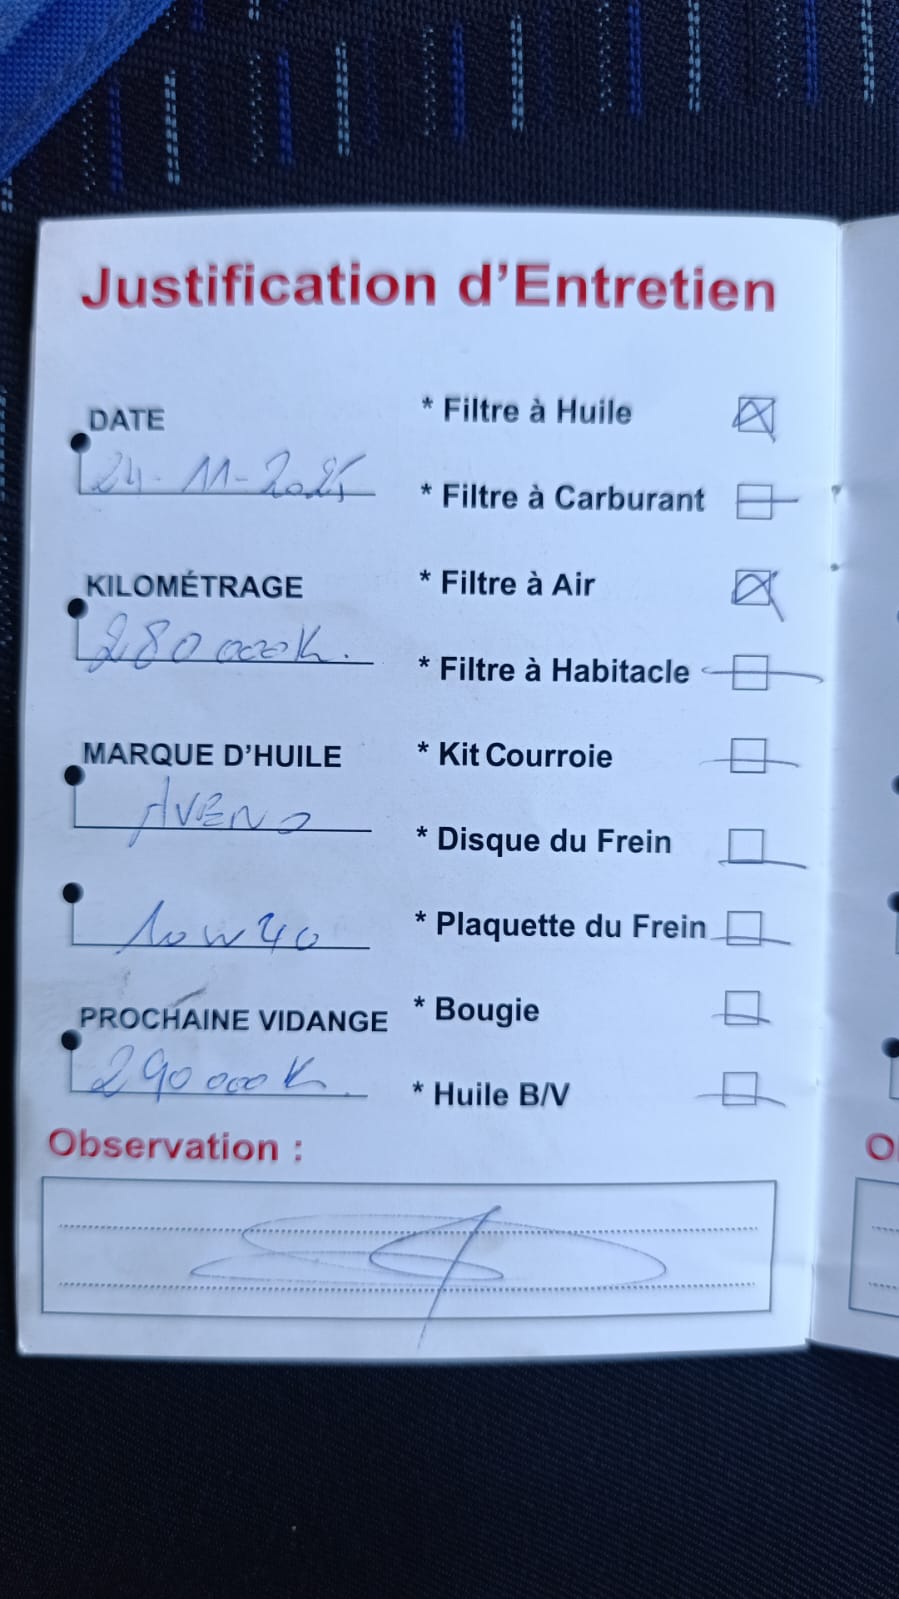 Justification d'Entretien
DATE
24-11-2025
KILOMÉTRAGE
280 000K.
MARQUE D'HUILE
AVENO
10W40
PROCHAINE VIDANGE
290 000 K
* Filtre à Huile
* Filtre à Carburant
* Filtre à Air
* Filtre à Habitacle
* Kit Courroie
* Disque du Frein
* Plaquette du Frein
* Bougie
* Huile B/V
Observation :